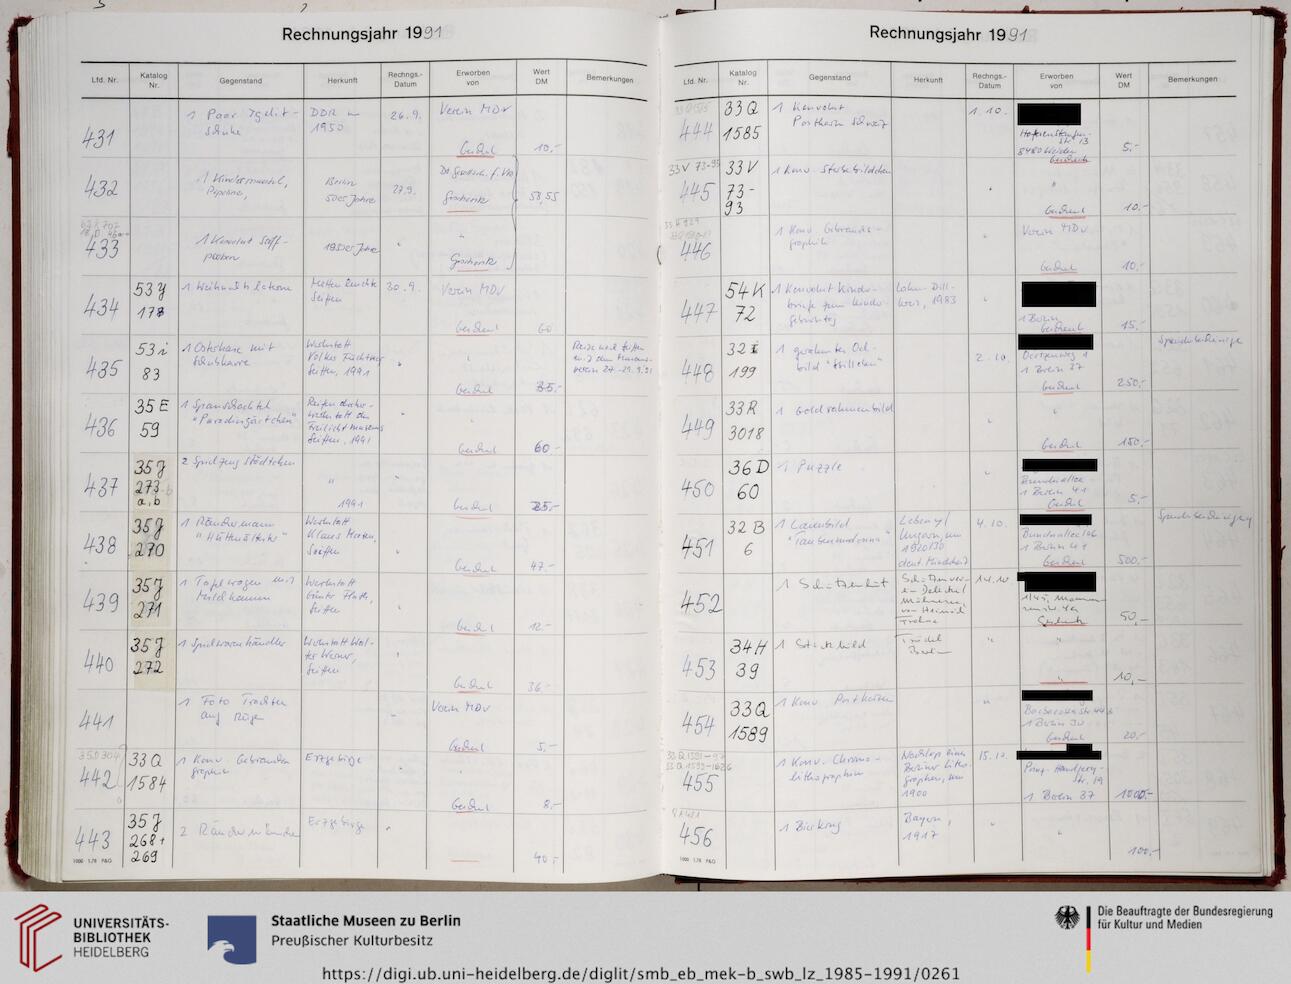 Rechnungsjahr 1991
Lfd. Nr.
Katalog Nr.
Gegenstand
Herkunft
Rechngs.-Datum
Erworben von
Wert DM
Bemerkungen
431
1 Paar Igelit-
schuhe
DDR um
1950
26.9.
Verein MDV
Geschenk
10,-
432
1 Kindermantel,
Popeline,
Berlin
50er Jahre
27.9.
Geschenk
58,55
433
1 Konvolut Stoff-
proben
1950er Jahre
"
"
Geschenk
434
53 y
178
1 Weihnachtslaterne
Seiffen
30.9.
Verein MDV
Geschenk
60
435
53 i
83
1 Osterhase mit
Schubkarre
Werkstatt
Volker Füchtner
Seiffen, 1991
"
"
Geschenk
35,-
436
35 E
59
1 Spanschachtel
"Paradiesgärtchen"
Seiffen, 1991
"
"
Geschenk
60,-
437
35 J
273
a, b
2 Spielzeug Städtchen
"
1991
"
Geschenk
25,-
438
35 J
270
1 Räuchermann
Werkstatt
Klaus Merten,
Seiffen
"
Geschenk
47,-
439
35 J
271
1 Tafelwagen mit
Werkstatt
Günter Flath,
Seiffen
Geschenk
12,-
440
35 J
272
1 Spielwarenhändler
Werkstatt Wal-
ter Werner,
Seiffen
"
Geschenk
36,-
441
1 Foto Trachten
auf Rügen
"
Verein MDV
Geschenk
5,-
35 D 304
442
33 Q
1584
1 Konv. Gebrauchs-
graphik
Erzgebirge
"
"
Geschenk
8,-
443
35 J
268 +
269
2 Räuchermännchen
Erzgebirge
"
40,-
1000 1.78 P&G
Rechnungsjahr 1991
Lfd. Nr.
Katalog Nr.
Gegenstand
Herkunft
Rechngs.-Datum
Erworben von
Wert DM
Bemerkungen
444
33 Q
1585
1 Konvolut
Postkarten Schweiz
1.10.
Hohenstaufen-
str. 13
8480 Weiden
Geschenk
5,-
33 V 73-93
445
33 V
73-
93
1 Konv. Sterbebildchen
"
"
Geschenk
10,-
446
1 Konv. Gebrauchs-
graphik
"
Verein MDV
Geschenk
10,-
447
54 K
72
1 Konvolut Kinder-
briefe zum Kinder-
geburtstag
Lahn-Dill-
Kreis, 1983
"
1 Berlin
Geschenk
15,-
448
32 I
199
1 gerahmtes Öl-
bild
2.10.
1 Berlin 37
Geschenk
250,-
Spendenbescheinigung
449
33 R
3018
1 Goldrahmenbild
"
"
Geschenk
150,-
450
36 D
60
1 Puzzle
"
Bundesallee
1 Berlin 41
Geschenk
5,-
451
32 B
6
1 Laienbild
"Taubenmadonna"
Ungarn, um
1920/30
4.10.
Bundesallee
1 Berlin 41
Geschenk
500,-
Spendenbescheinigung
452
1 Schützenhut
14.10.
Geschenk
50,-
453
34 H
39
1 Stickbild
Trödel
Berlin
"
"
"
10,-
454
33 Q
1589
1 Konv. Postkarten
"
Barbarossastr.
1 Berlin 30
Geschenk
20,-
33 Q 1591-97
33 Q 1599-1626
455
1 Konv. Chromo-
lithographien
Nachlass eines
Berliner Litho-
graphen, um
1900
15.10.
Prinz-Handjery-
str. 19
1 Berlin 37
1000,-
456
1 Bierkrug
Bayern,
1917
"
"
100,-
1000 1.78 P&G
UNIVERSITÄTS-
BIBLIOTHEK
HEIDELBERG
Staatliche Museen zu Berlin
Preußischer Kulturbesitz
Die Beauftragte der Bundesregierung
für Kultur und Medien
https://digi.ub.uni-heidelberg.de/diglit/smb_eb_mek-b_swb_lz_1985-1991/0261